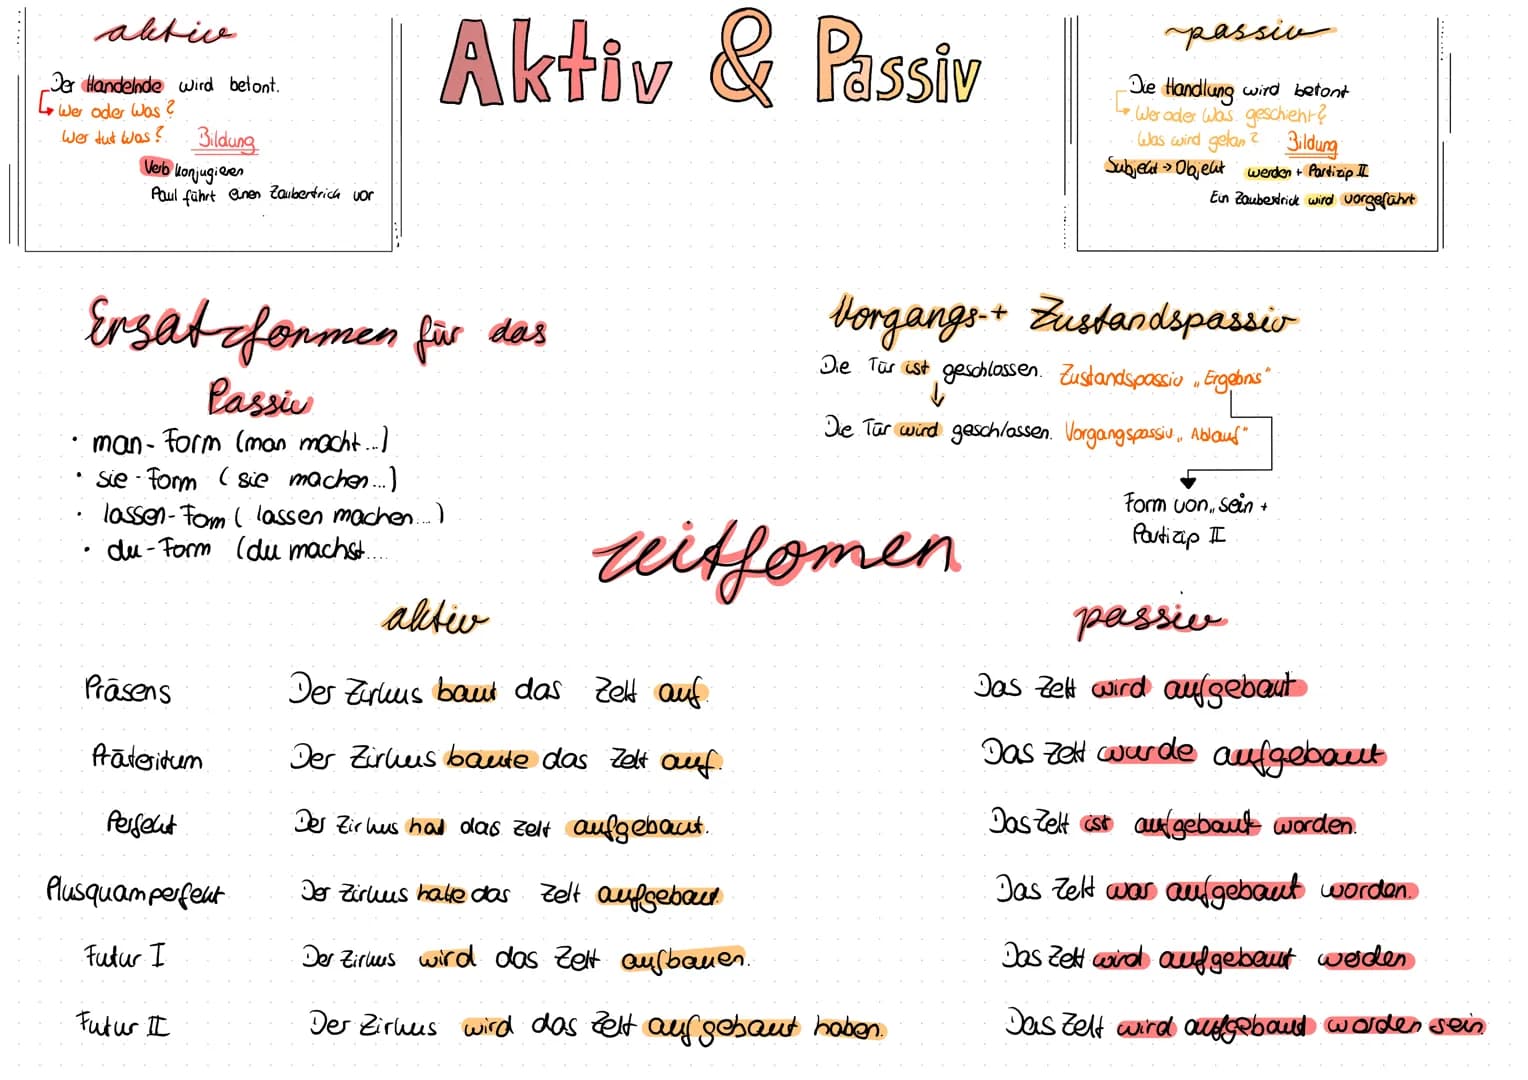 Aktiv & Passiv
aktiv
Der Handelnde wird betont.
Wer oder Was?
Wer tut Was?
Bildung
Verb konjugieren
Paul führt einen Zaubertrick vor
passiv
Die Handlung wird betont
Wer oder Was geschieht?
Was wird getan?
Bildung
Subjekt → Objekt werden + Partizip II
Ein Zaubertrick wird vorgeführt
Ersatzformen für das
Passiv
• man-Form (man macht...)
• sie-Form (sie machen...)
• lassen-Form (lassen machen...)
• du-Form (du machst....
Vorgangs-+ Zustandspassiv
Die Tür ist geschlossen. Zustandspassiv „Ergebnis"
Die Tür wird geschlossen. Vorgangspassiv „Ablauf"
Form von „sein +
Partizip II
zeitfomen
aktiv passiv
Präsens Der Zirkus baut das Zelt auf. Das Zelt wird aufgebaut
Präteritum Der Zirkus baute das Zelt auf. Das Zelt wurde aufgebaut
Perfekt Der Zirkus hat das Zelt aufgebaut. Das Zelt ist aufgebaut worden.
Plusquamperfekt Der Zirkus hatte das Zelt aufgebaut. Das Zelt war aufgebaut worden.
Futur I Der Zirkus wird das Zelt aufbauen. Das Zelt wird aufgebaut werden
Futur II Der Zirkus wird das Zelt aufgebaut haben. Das Zelt wird aufgebaut worden sein.